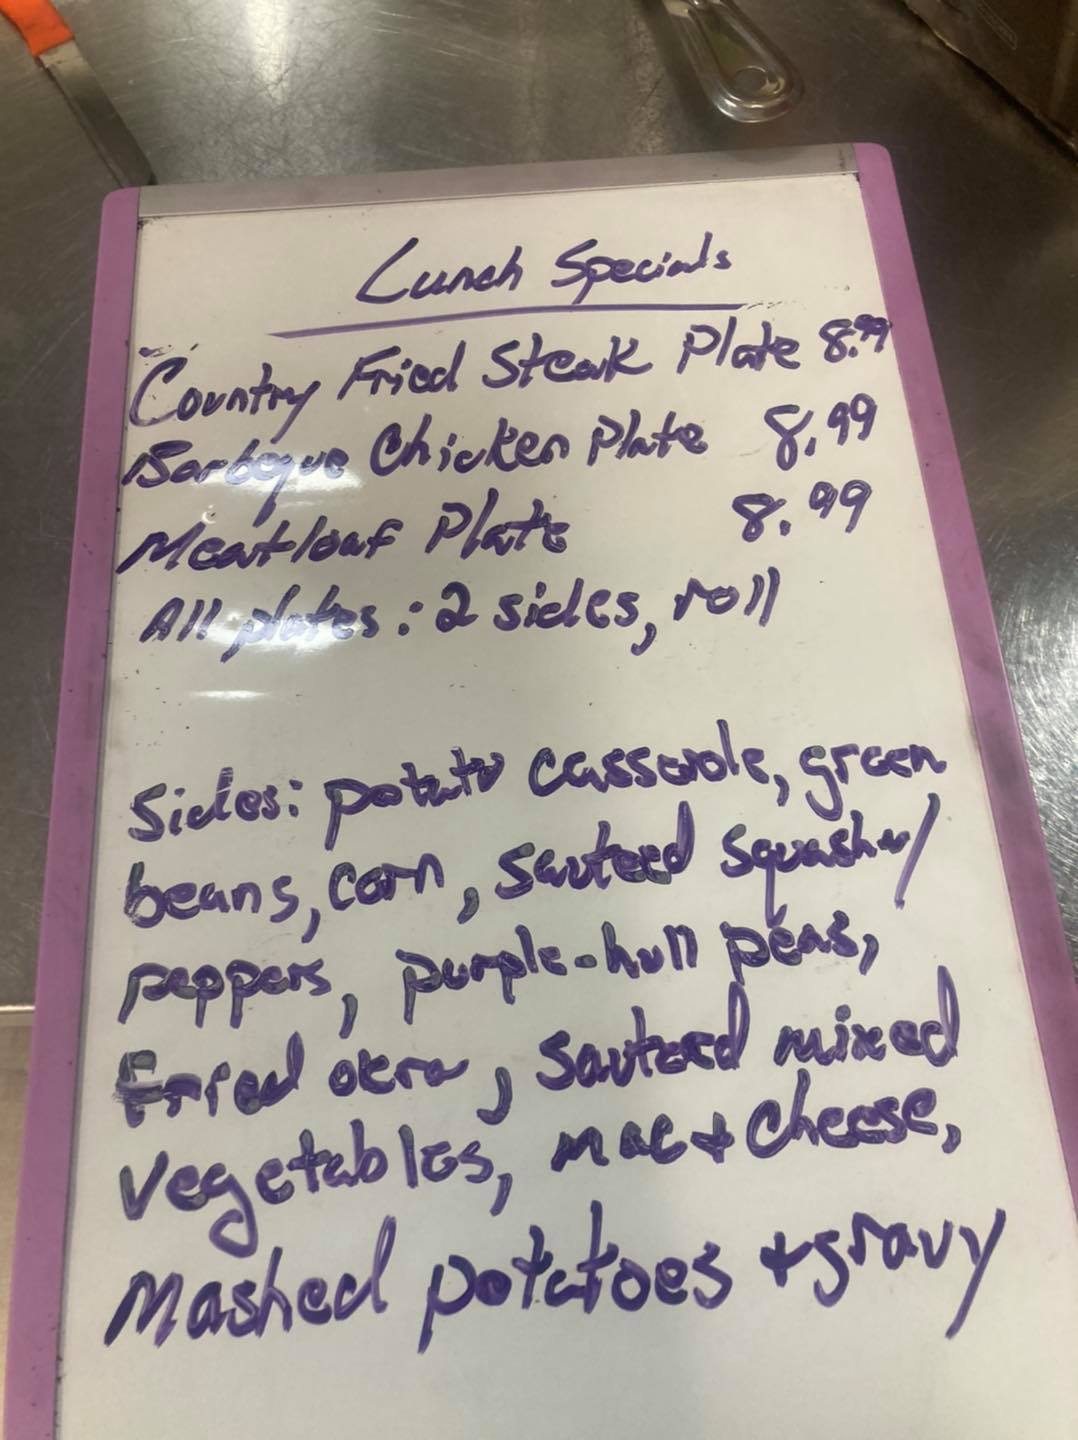 Lunch Specials
Country Fried Steak Plate 8.99
Barbeque Chicken Plate 8.99
Meatloaf Plate 8.99
All plates: 2 sides, roll
Sides: potato casserole, green
beans, corn, sauteed squash w/
peppers, purple-hull peas,
Fried okra, sauteed mixed
vegetables, mac & cheese,
Mashed potatoes & gravy